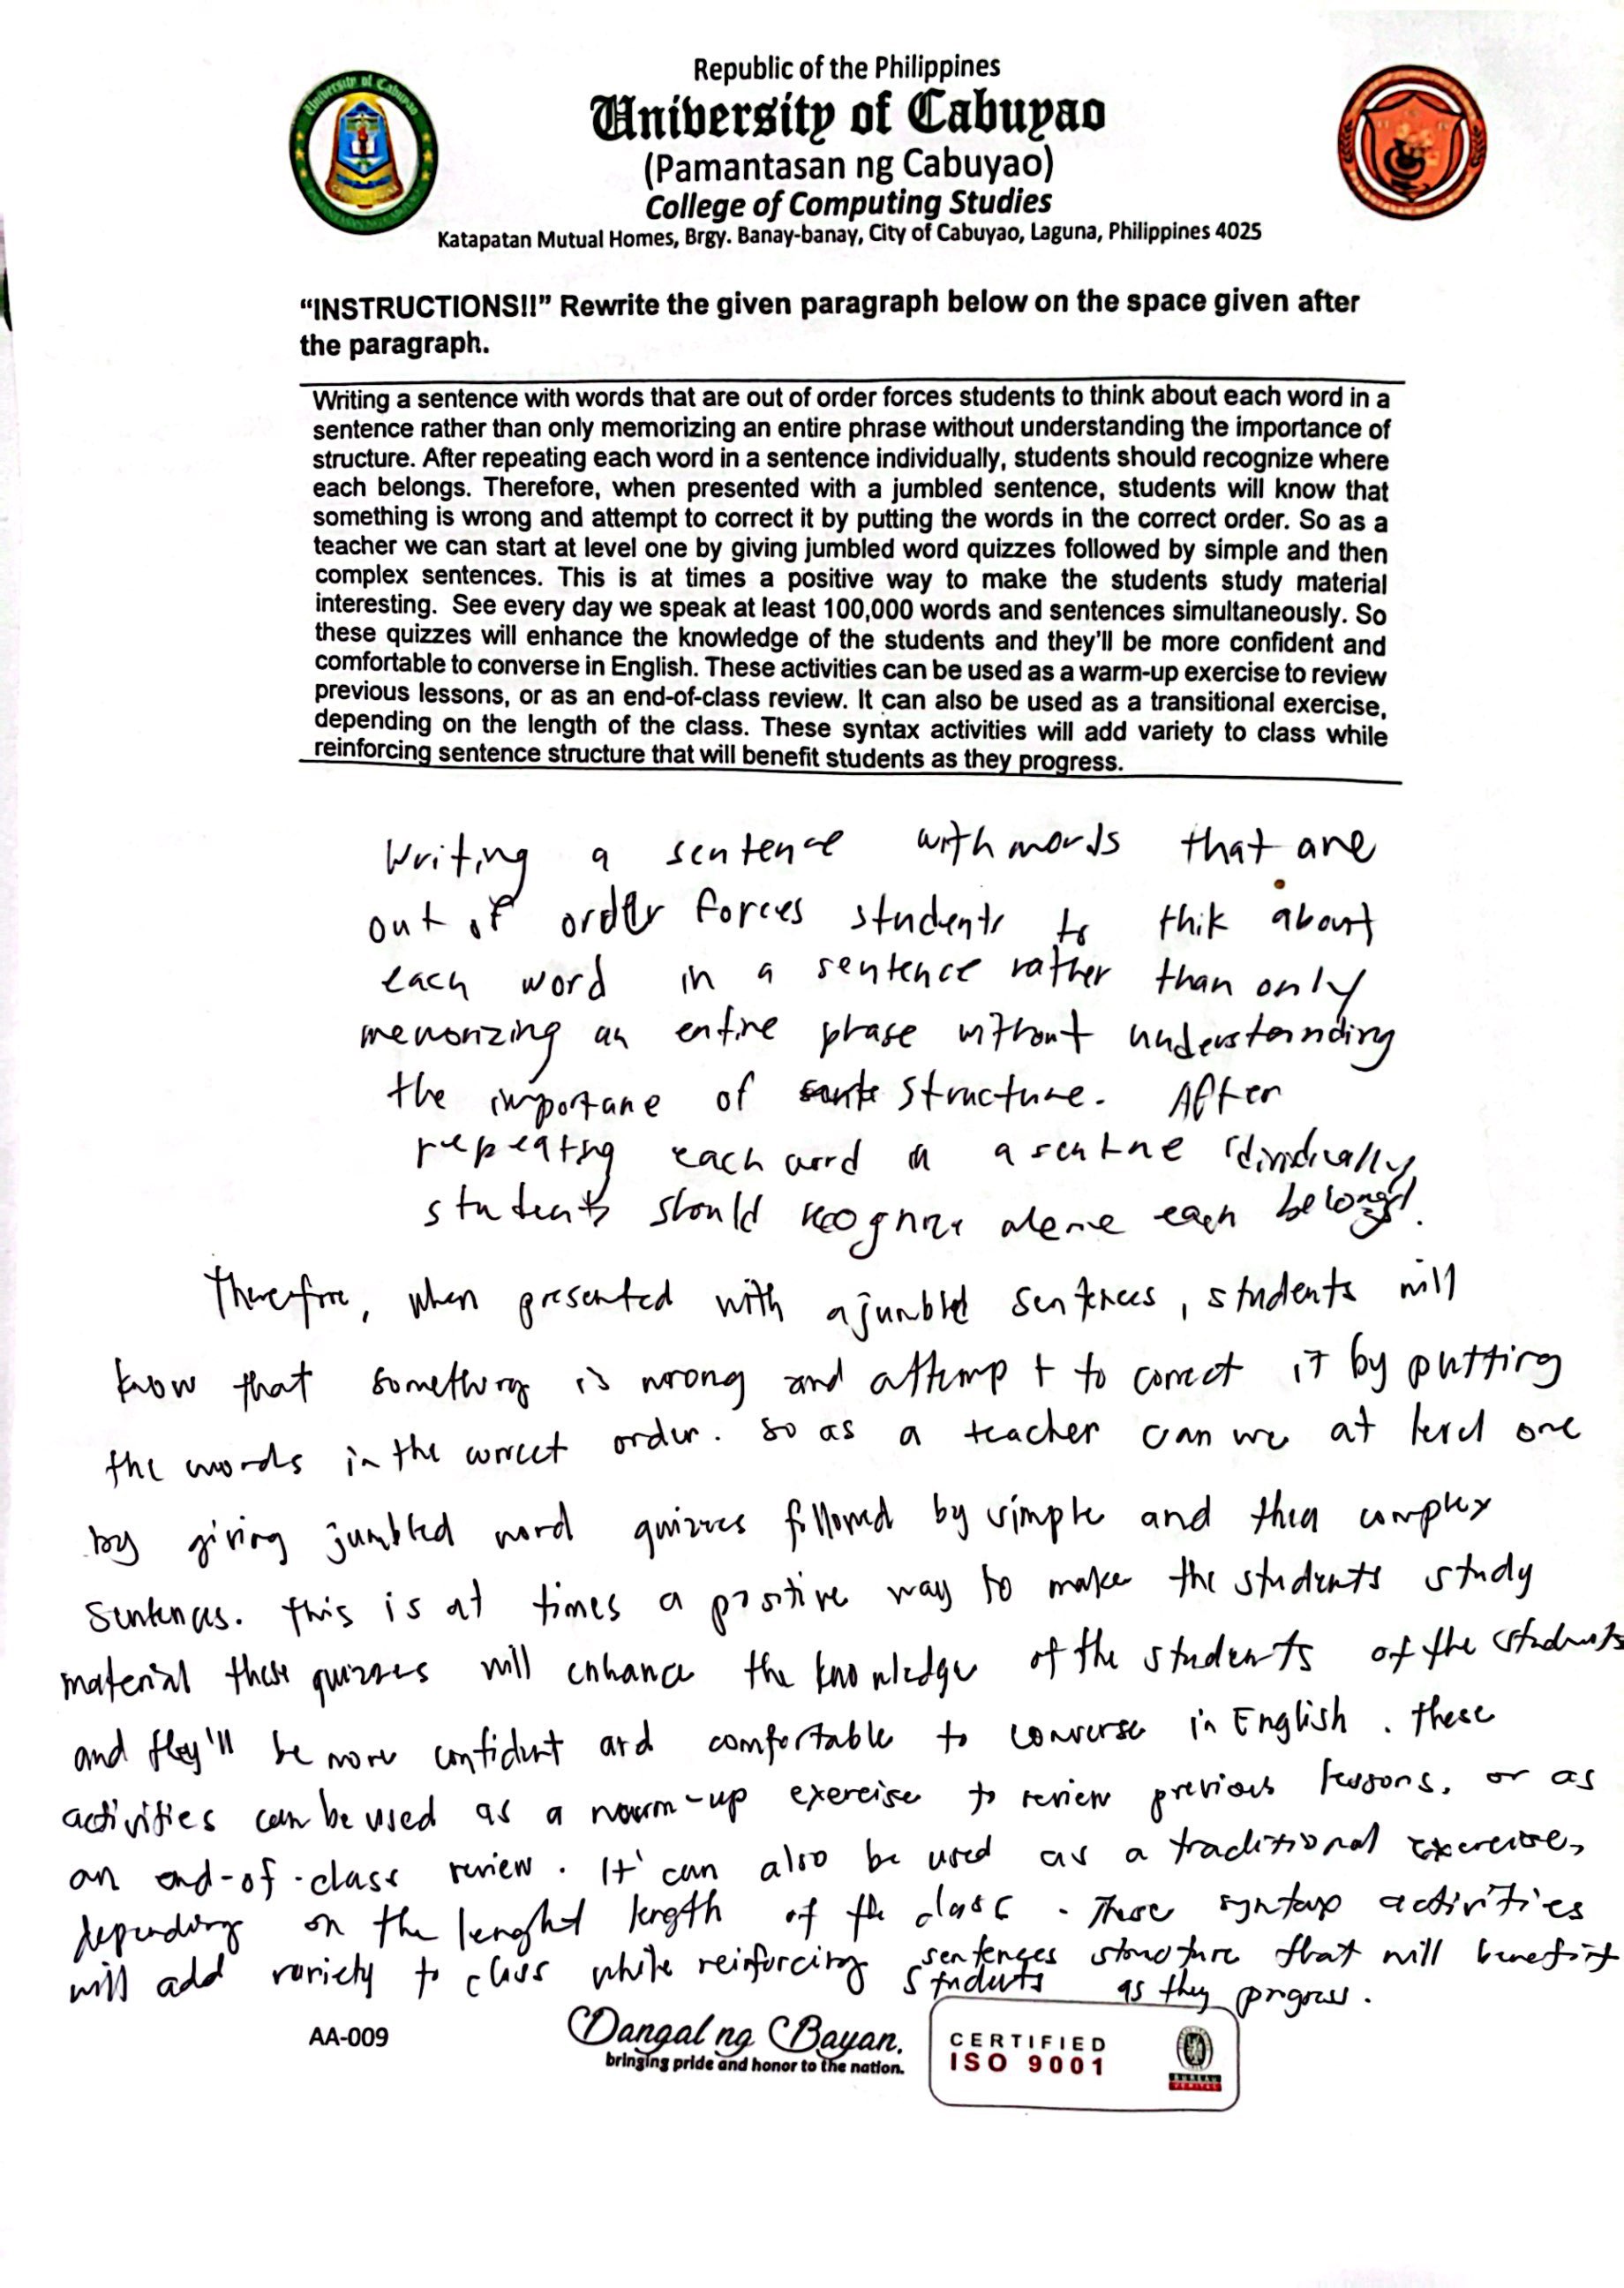 Republic of the Philippines
University of Cabuyao
(Pamantasan ng Cabuyao)
College of Computing Studies
Katapatan Mutual Homes, Brgy. Banay-banay, City of Cabuyao, Laguna, Philippines 4025
University of Cabuyao
“INSTRUCTIONS!!” Rewrite the given paragraph below on the space given after
the paragraph.
Writing a sentence with words that are out of order forces students to think about each word in a
sentence rather than only memorizing an entire phrase without understanding the importance of
structure. After repeating each word in a sentence individually, students should recognize where
each belongs. Therefore, when presented with a jumbled sentence, students will know that
something is wrong and attempt to correct it by putting the words in the correct order. So as a
teacher we can start at level one by giving jumbled word quizzes followed by simple and then
complex sentences. This is at times a positive way to make the students study material
interesting. See every day we speak at least 100,000 words and sentences simultaneously. So
these quizzes will enhance the knowledge of the students and they'll be more confident and
comfortable to converse in English. These activities can be used as a warm-up exercise to review
previous lessons, or as an end-of-class review. It can also be used as a transitional exercise,
depending on the length of the class. These syntax activities will add variety to class while
reinforcing sentence structure that will benefit students as they progress.
Writing a sentence with words that are
out of order forces students to thik about
each word in a sentence rather than only
memorizing an entire phrase without understanding
the importane of structure. After
repeating each word in a sentne
students should recognize each belongs.
Therefore, when presented with a jumbled sentences, students will
know that something is wrong and attempt to correct it by putting
the words in the correct order. So as a teacher can we at level one
by giving jumbled word quizzes followed by simple and then complex
sentences. This is at times a positive way to make the students study
material these quizzes will enhance the knowledge of the students of the students
and they'll be more confident and comfortable to converse in English. These
activities can be used as a warm-up exercise to review previous lessons, or as
an end-of-class review. It can also be used as a traditional exercise,
depending on the lenght length of the class. These syntax activities
will add variety to class while reinforcing sentences structure that will benefit
students as they progress.
AA-009
Dangal ng Bayan.
bringing pride and honor to the nation.
CERTIFIED
ISO 9001
BUREAU
VERITAS